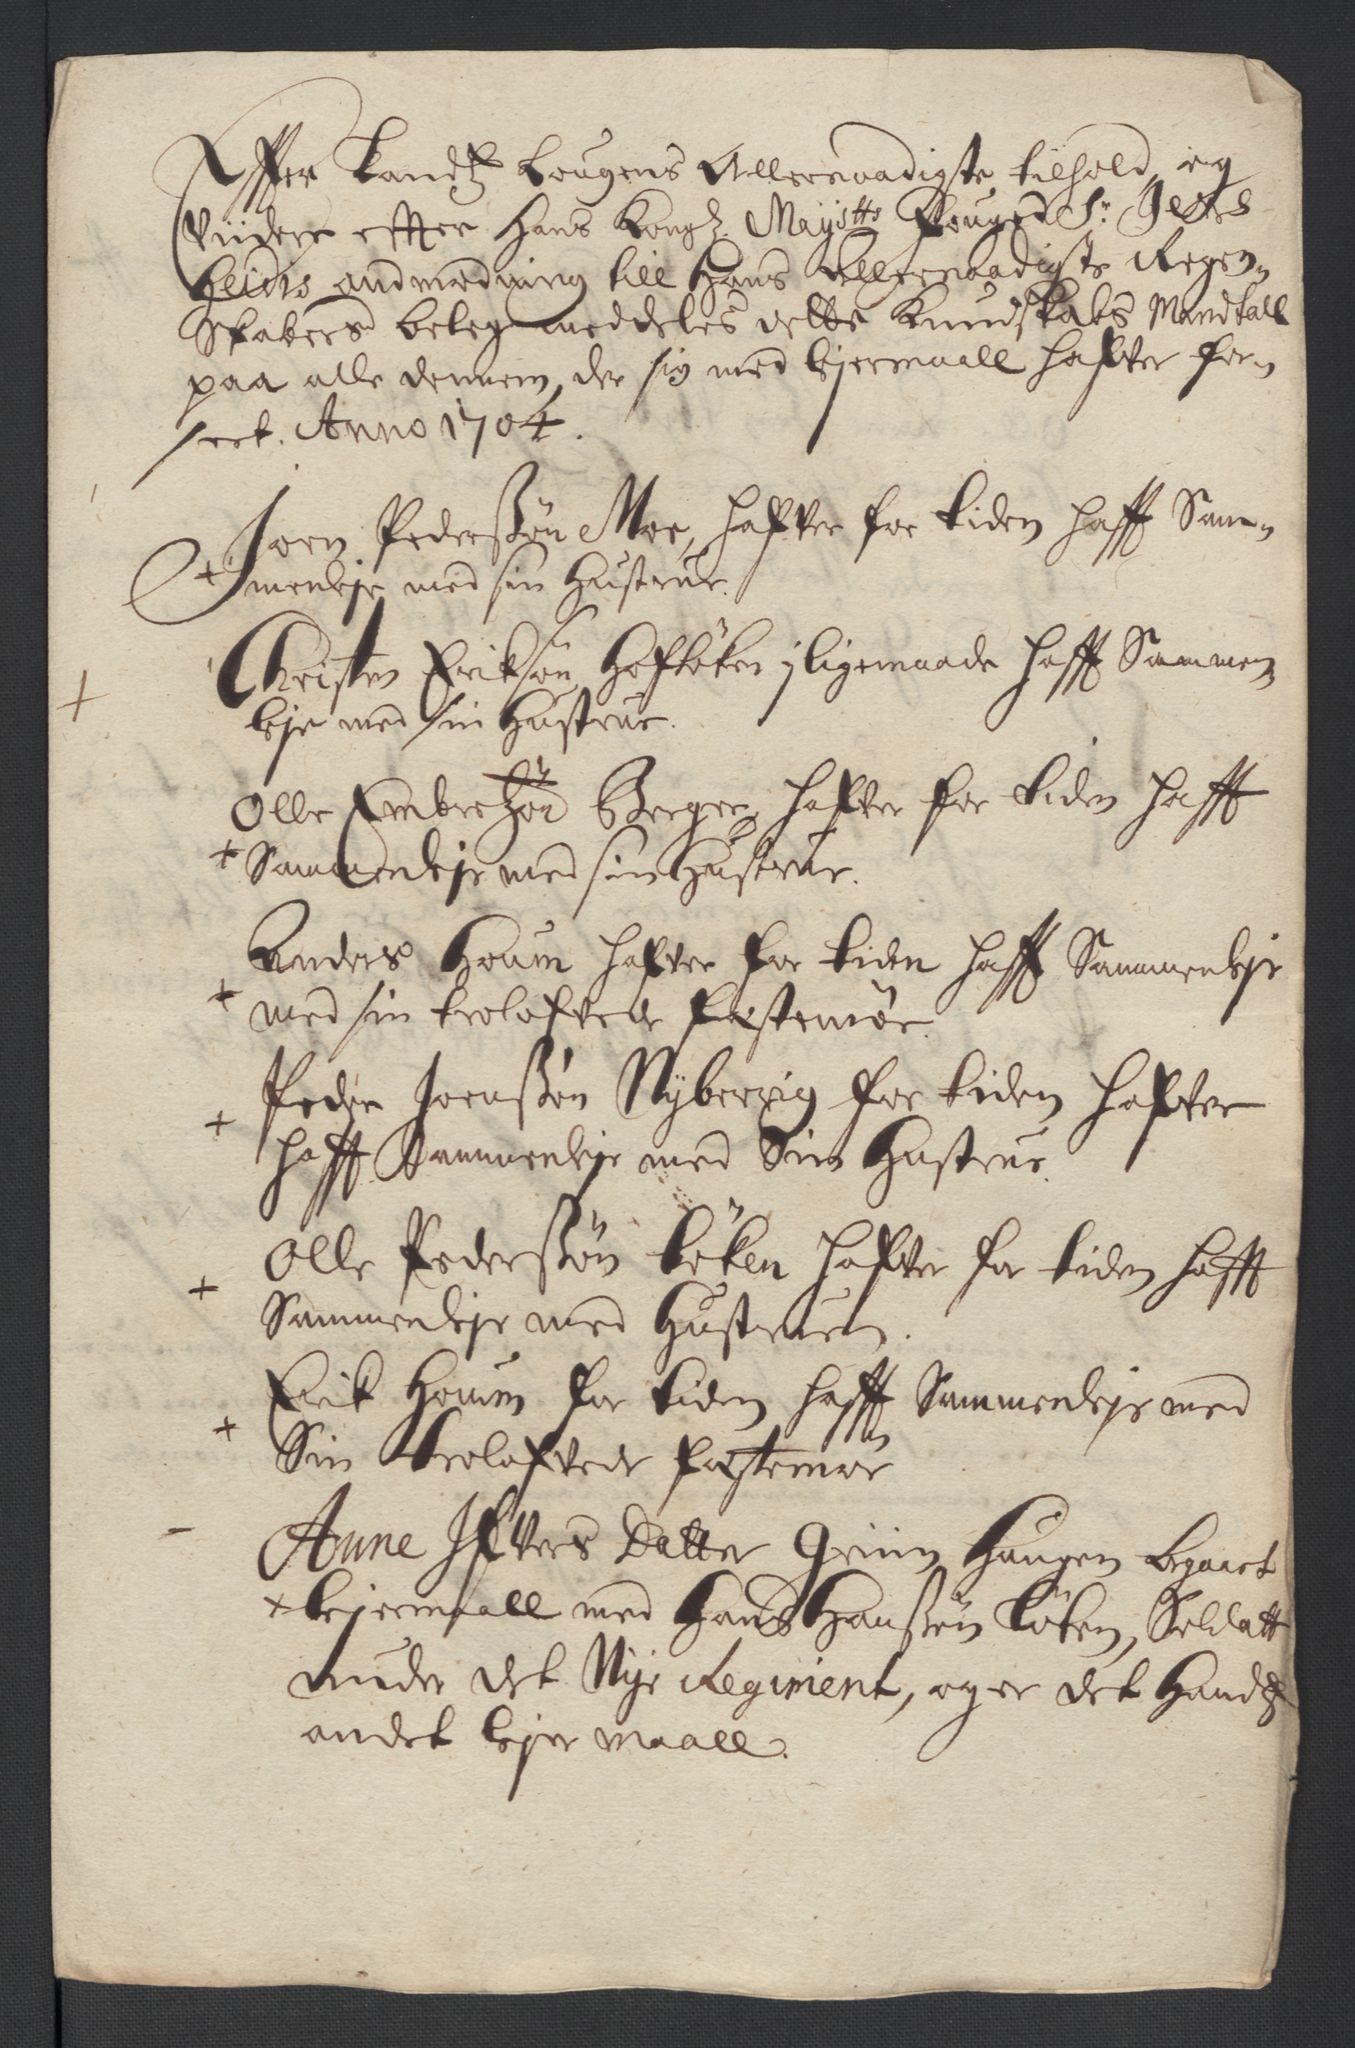 Effter Landz Lougens Allernaadigste tilhold, og
Viidere effter Hans Kongl Mayistts Fouged Sr
Heids andmodning till Hans Allernaadigste Regen-
skabers beleg meddeles dette Kundskabs Mandtall
paa alle dennem, der sig med lejermaall hafver for-
seet. Anno 1704.
Joen Pederssøn Moe, hafver for tiden hafft Sam-
+ menleje med sin Hustrue.
+ Christen Erikssøn Hofløken j ligemaade hafft Sammen-
leje med sin Hustrue.
Olle Berger, hafver for tiden hafft
+ Sammenleje med sin Hustrue.
Anders Houm hafver for tiden hafft Sammenleje
+ med sin trolofvede festemøe.
+ Peder Joenssøn Nybervig for tiden hafver
hafft Sammenleje med Sin Hustrue.
Olle Pederssøn Løken hafver for tiden hafft
+ Sammenleje med Hustruen.
Erik Houm for tiden hafft Sammenleje med
+ Sin trolofvede festemøe
- Anne Ifvers Datter Griin Haugen begaaet
+ lejermaall med Hans Hanssøn Løken, Soldatt
under det Nye Regiment, og er det Handz
andet lejermaall.